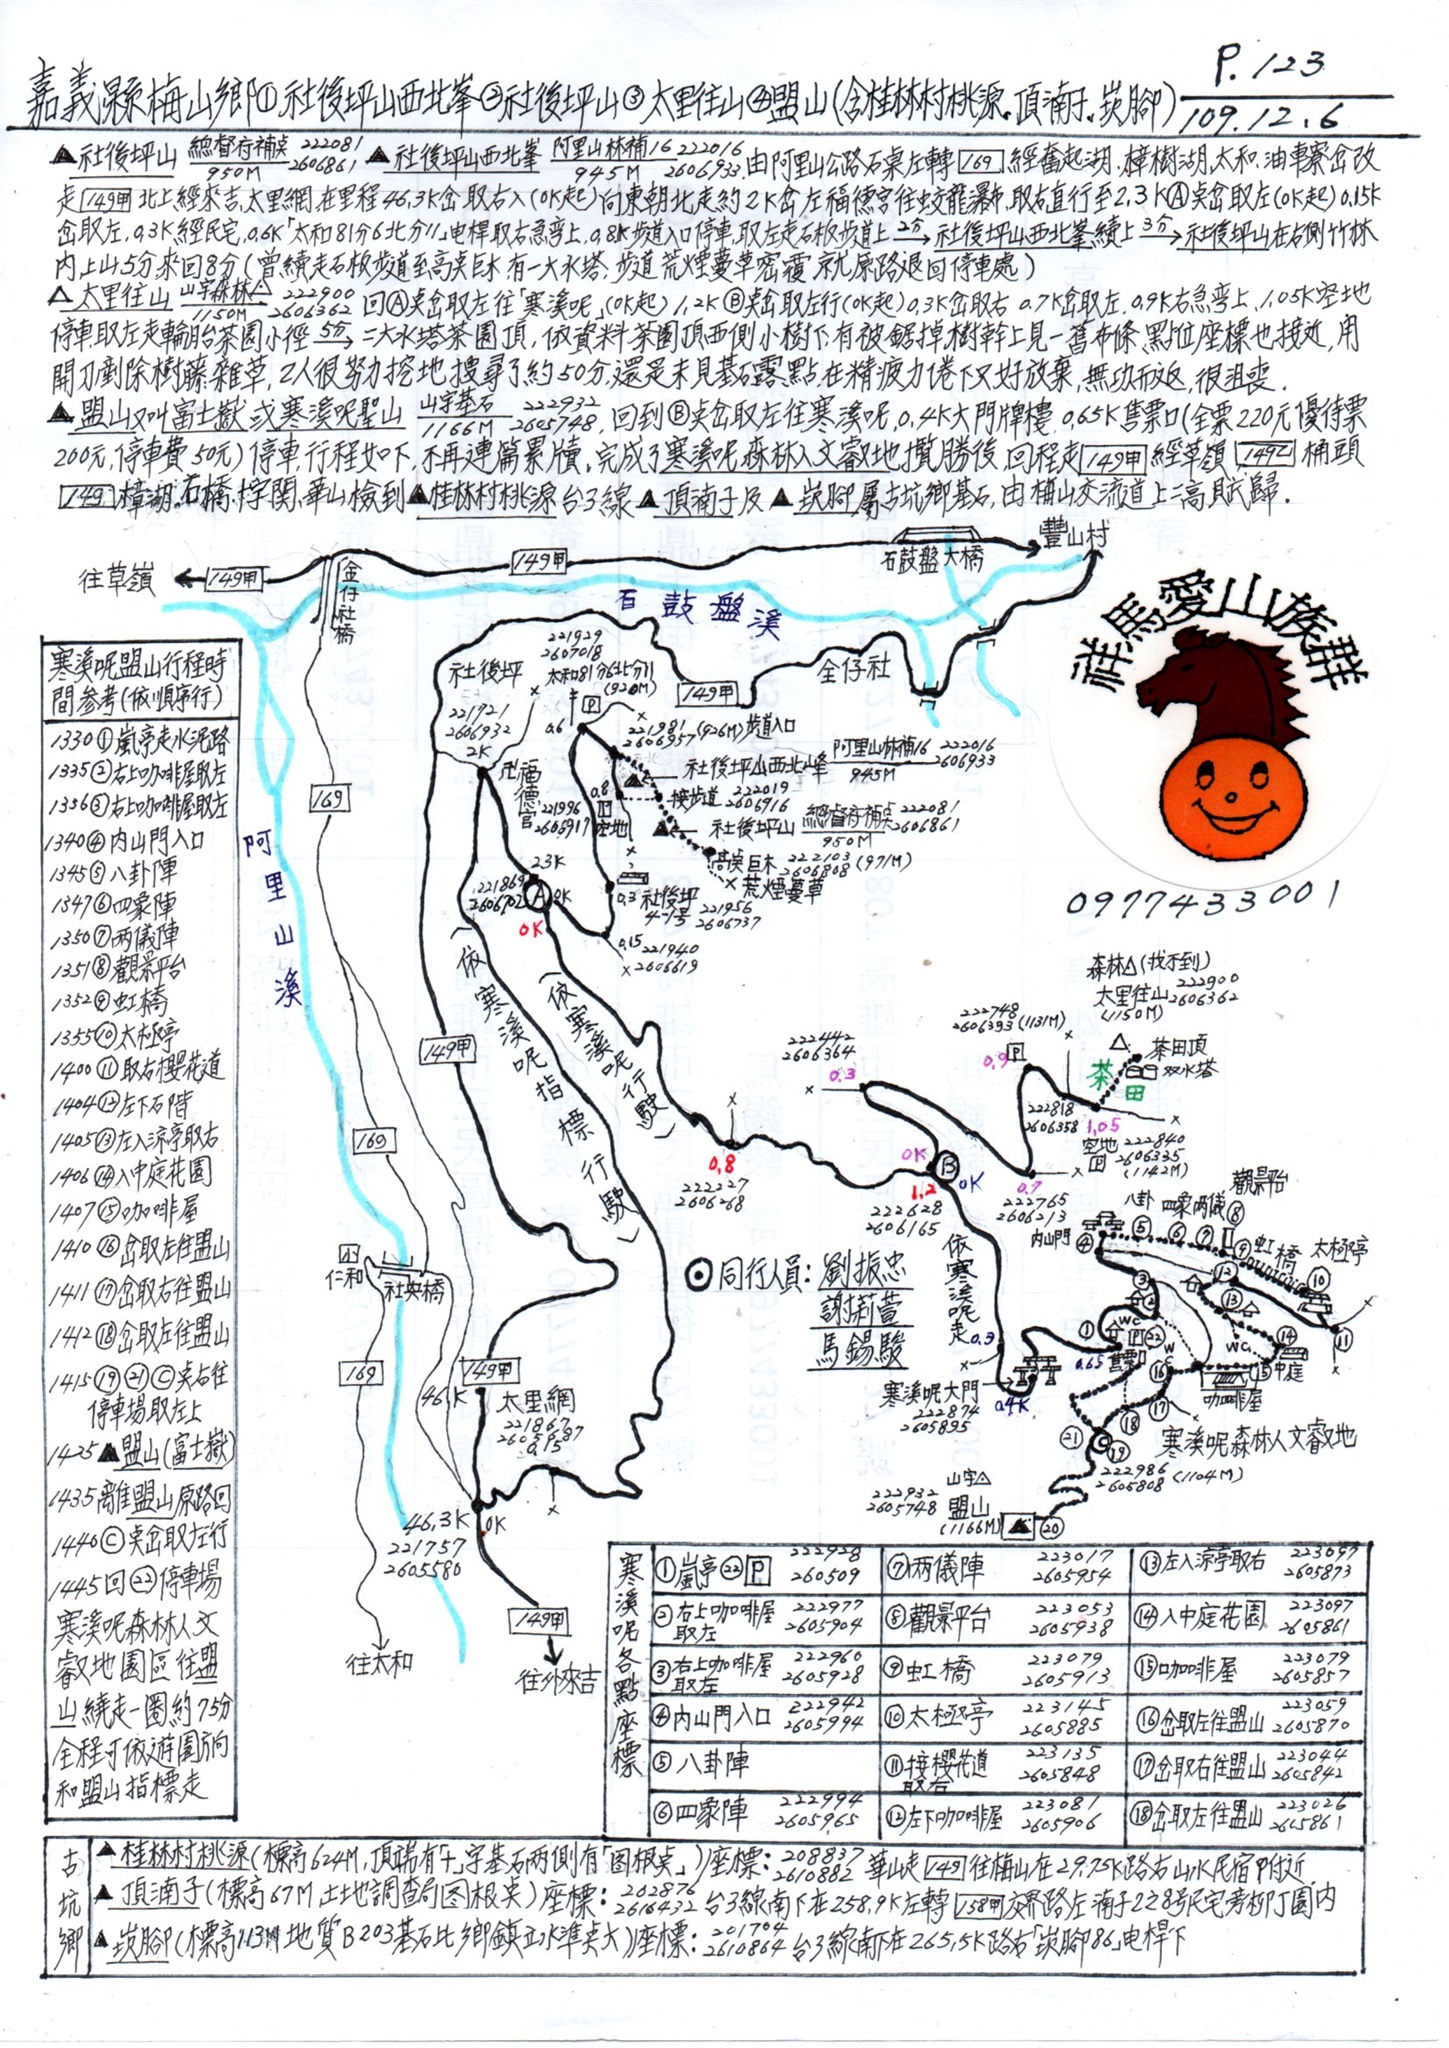 P.123
嘉義縣梅山鄉①社後坪山西北峯②社後坪山③太里往山④盟山(含桂林村桃源.頂湳子.崁腳)
109.12.6
▲社後坪山 總督府補点 950M 222081 2606861 ▲社後坪山西北峯 阿里山林補16 945M 222016 2606933 由阿里山公路石桌左轉169經奮起湖.樟樹湖.太和.油車寮岔改
走149甲北上經來吉.太里網.在里程46.3K岔取右入(0K起)向東朝北走約2K岔左福德宮往蛟龍瀑布,取右直行至2.3KⒶ点岔取左(0K起)0.15K
岔取左.0.3K經民宅.0.6K「太和81分6北分11」電桿取右急彎上.0.8K步道入口停車.取左走石板步道上2分→社後坪山西北峯.續上3分→社後坪山在右側竹林
內上山5分.來回8分(曾續走石板步道至高点巨木有一大水塔.步道荒煙蔓草密覆就原路退回停車處)
△太里往山 山字森林△ 1150M 222900 2606362 回Ⓐ点岔取左往「寒溪呢」(0K起)1.2KⒷ点岔取左行(0K起)0.3K岔取右0.7K岔取左.0.9K右急彎上.1.05K空地
停車取左走輪胎茶園小徑5分→二大水塔茶園頂,依資料茶園頂西側小樹下有被鋸掉樹幹上見一舊布條.點位座標也接近,用
開刀剷除樹藤雜草,2人很努力挖地搜尋了約50分.還是未見基石露點.在精疲力倦下只好放棄,無功而返,很沮喪.
▲盟山又叫富士嶽或寒溪呢聖山 山字基石 1166M 222932 2605748,回到Ⓑ点岔取左往寒溪呢,0.4K大門牌樓,0.65K售票口(全票220元優待票
200元,停車費50元)停車,行程如下,不再連篇累牘.完成了寒溪呢森林人文叡地攬勝後,回程走149甲經草嶺,149乙桶頭
149樟湖.石橋.桲関.華山檢到▲桂林村桃源台3線▲頂湳子及▲崁腳屬古坑鄉基石,由梅山交流道上二高賦歸.
往草嶺
149甲
金仔社橋
149甲
石鼓盤大橋
豐山村
石鼓盤溪
祥馬愛山族群
0977433001
寒溪呢盟山行程時
間參考(依順序行)
1330①嵐亭走水泥路
1335②右上咖啡屋取左
1336③右上咖啡屋取左
1340④內山門入口
1345⑤八卦陣
1347⑥四象陣
1350⑦兩儀陣
1351⑧觀景平台
1352⑨虹橋
1355⑩太極亭
1400⑪取右櫻花道
1404⑫左下石階
1405⑬左入涼亭取右
1406⑭入中庭花園
1407⑮咖啡屋
1410⑯岔取左往盟山
1411⑰岔取右往盟山
1412⑱岔取左往盟山
1415⑲㉑Ⓒ点右往
停車場取左上
1425▲盟山(富士嶽)
1435離盟山原路回
1440Ⓒ点岔取左行
1445回㉒停車場
寒溪呢森林人文
叡地園區往盟
山繞走一圈約75分
全程可依遊園方向
和盟山指標走
阿里山溪
169
169
169
仁和
社央橋
往太和
社後坪
221921
2606932
2K
221929
2607018
太和81分6北分11
(920M)
P
0.6
卍福德宮
金仔社
149甲
221981 (926M)步道入口
2606957
社後坪山西北峰 阿里山林補16 945M 222016 2606933
接步道 222019 2606916
社後坪山 總督府補点 950M 222081 2606861
高点巨木 222103 2606808 (971M)
荒煙蔓草
0.8
P
空地
221996
2606917
2.3K
221869
2606702
A
0K
0K
0.3
社後坪
4-1号
221956
2606737
0.15
221940
2606619
(依寒溪呢指標行駛)
(依寒溪呢行駛)
149甲
149甲
46K
太里網
221867
2605587
0.15
46.3K
221757
2605580
0K
149甲
往外來吉
0.8
222227
2606268
222442
2606364
0.3
0K
B
0K
1.2
222628
2606165
222748
2606393 (1131M)
0.9
P
0.7
222765
2606213
222818
2606358
1.05
空地
P
222840
2606335
(1142M)
森林△(找不到)
太里往山 222900
(1150M) 2606362
茶田頂
双水塔
茶田
◎同行人員:劉振忠
謝莉萱
馬錫駿
依寒溪呢走
0.3
寒溪呢大門
222874
2605895
0.4K
0.65
售票
內山門
八卦 四象 兩儀
觀景平台
虹橋
太極亭
中庭
咖啡屋
WC
寒溪呢森林人文叡地
222986 (1104M)
2605808
山字△
222932
2605748
盟山
(1166M)
寒溪呢各點座標
①嵐亭㉒P 222928 260509
②右上咖啡屋取左 222977 2605904
③右上咖啡屋取左 222960 2605928
④內山門入口 222942 2605994
⑤八卦陣
⑥四象陣 222994 2605965
⑦兩儀陣 223017 2605954
⑧觀景平台 223053 2605938
⑨虹橋 223079 2605913
⑩太極亭 223145 2605885
⑪接櫻花道取右 223135 2605848
⑫左下咖啡屋 223081 2605906
⑬左入涼亭取右 223097 2605873
⑭入中庭花園 223097 2605861
⑮咖啡屋 223079 2605857
⑯岔取左往盟山 223059 2605870
⑰岔取右往盟山 223044 2605842
⑱岔取左往盟山 223026 2605861
古坑鄉
▲桂林村桃源(標高624M,頂端有「十」字基石兩側有「图根点」)座標:208837 2610882 華山走149往梅山在29.75K路右山水民宿附近
▲頂湳子(標高67M土地調查局图根点)座標:202876 2616432 台3線南下在258.9K左轉158甲交界路左湳子228号民宅旁柳丁園內
▲崁腳(標高113M地質B203基石比鄉鎮正水準点大)座標:201704 2610864 台3線南下在265.5K路右「崁腳86」電桿下